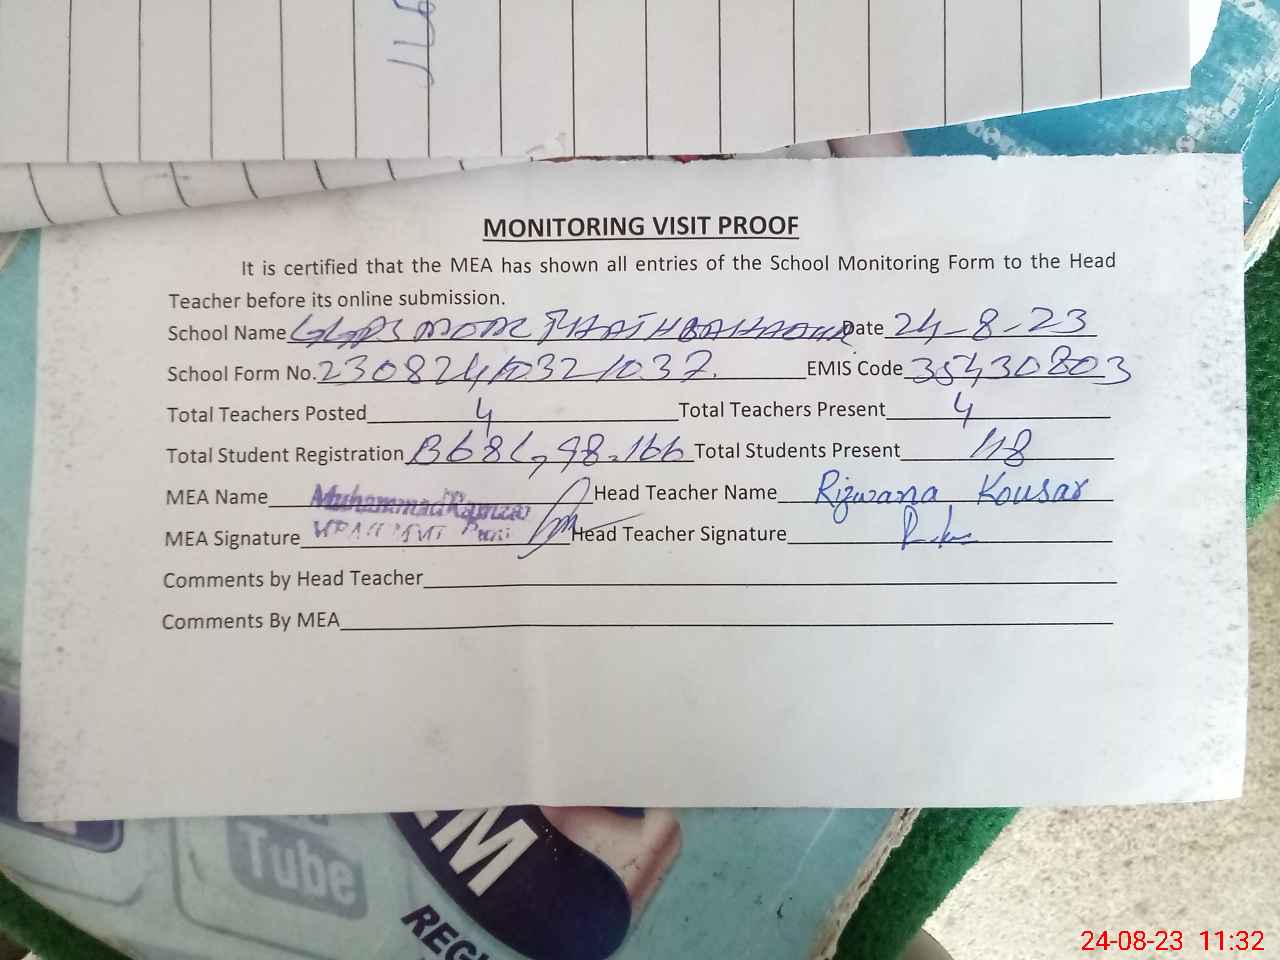 MONITORING VISIT PROOF
It is certified that the MEA has shown all entries of the School Monitoring Form to the Head
Teacher before its online submission.
School Name Date 24-8-23
School Form No. 23082410321037. EMIS Code 35430803
Total Teachers Posted 4 Total Teachers Present 4
Total Student Registration 98.166 Total Students Present 48
MEA Name Muhammad Ramzan Head Teacher Name Rizwana Kousar
MEA Signature Head Teacher Signature
Comments by Head Teacher
Comments By MEA
Tube
REGI
24-08-23 11:32